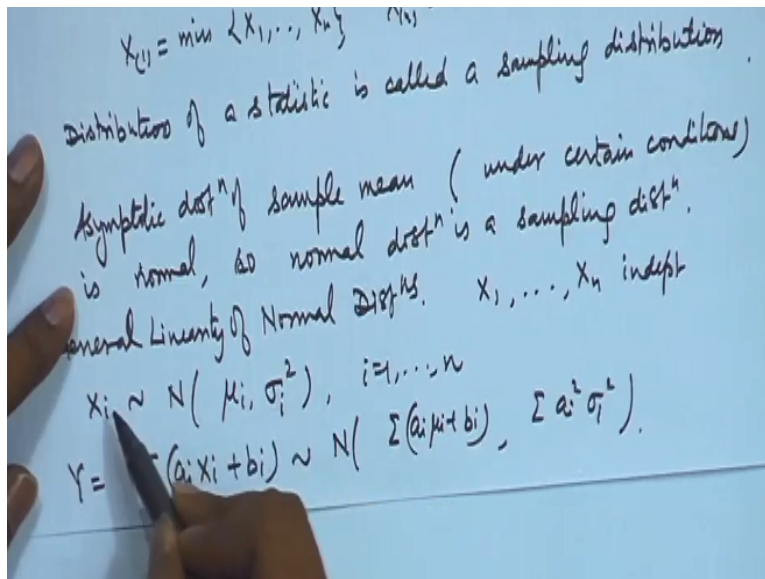 X(1) = min {X1,.., Xn}
Distribution of a statistic is called a sampling distribution.
Asymptotic distⁿ of sample mean ( under certain conditions)
is normal, so normal distⁿ is a sampling distⁿ.
eneral Linearity of Normal Distⁿs. X1, ..., Xn indept
Xi ~ N( μi, σi²), i=1,...,n
Y = (ai Xi + bi) ~ N( Σ(ai μi + bi), Σ ai² σi²).